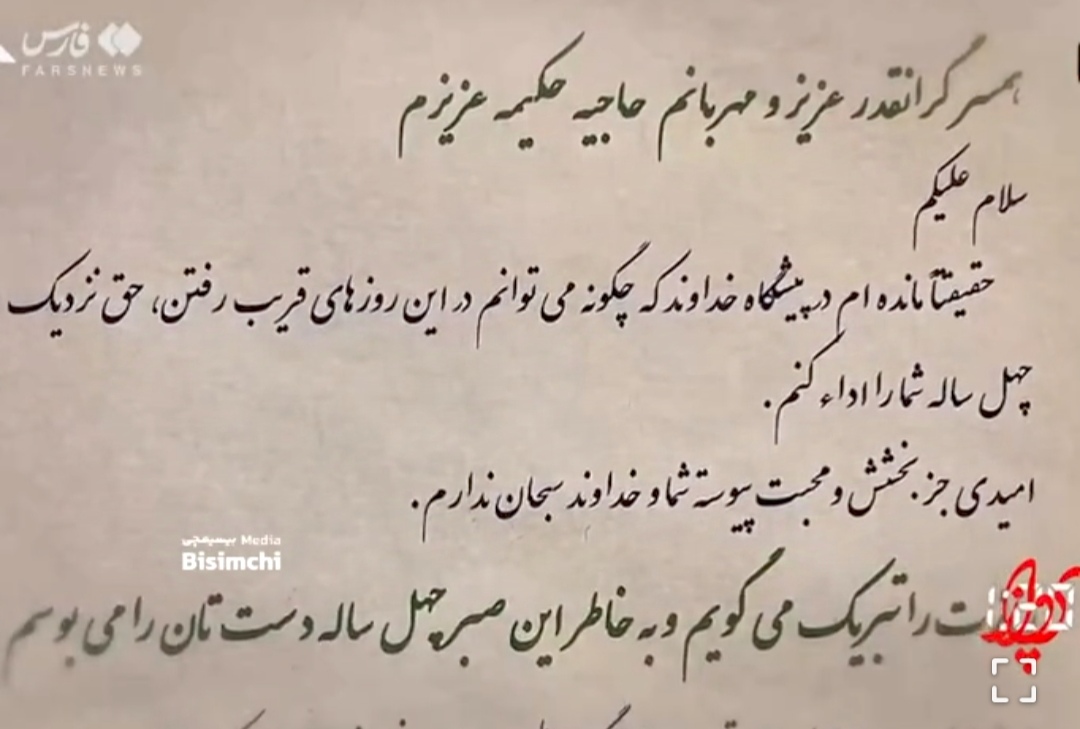 فارس
FARSNEWS
همسر گرانقدر عزیز و مهربانم حاجیه حکیمه عزیزم
سلام علیکم
حقیقتاً مانده ام در پیشگاه خداوند که چگونه می توانم در این روزهای قریب رفتن، حق نزدیک
چهل ساله شما را اداء کنم.
امیدی جز بخشش و محبت پیوسته شما و خداوند سبحان ندارم.
بیسیمچی Media
Bisimchi
را تبریک می گویم و به خاطر این صبر چهل ساله دست تان را می بوسم